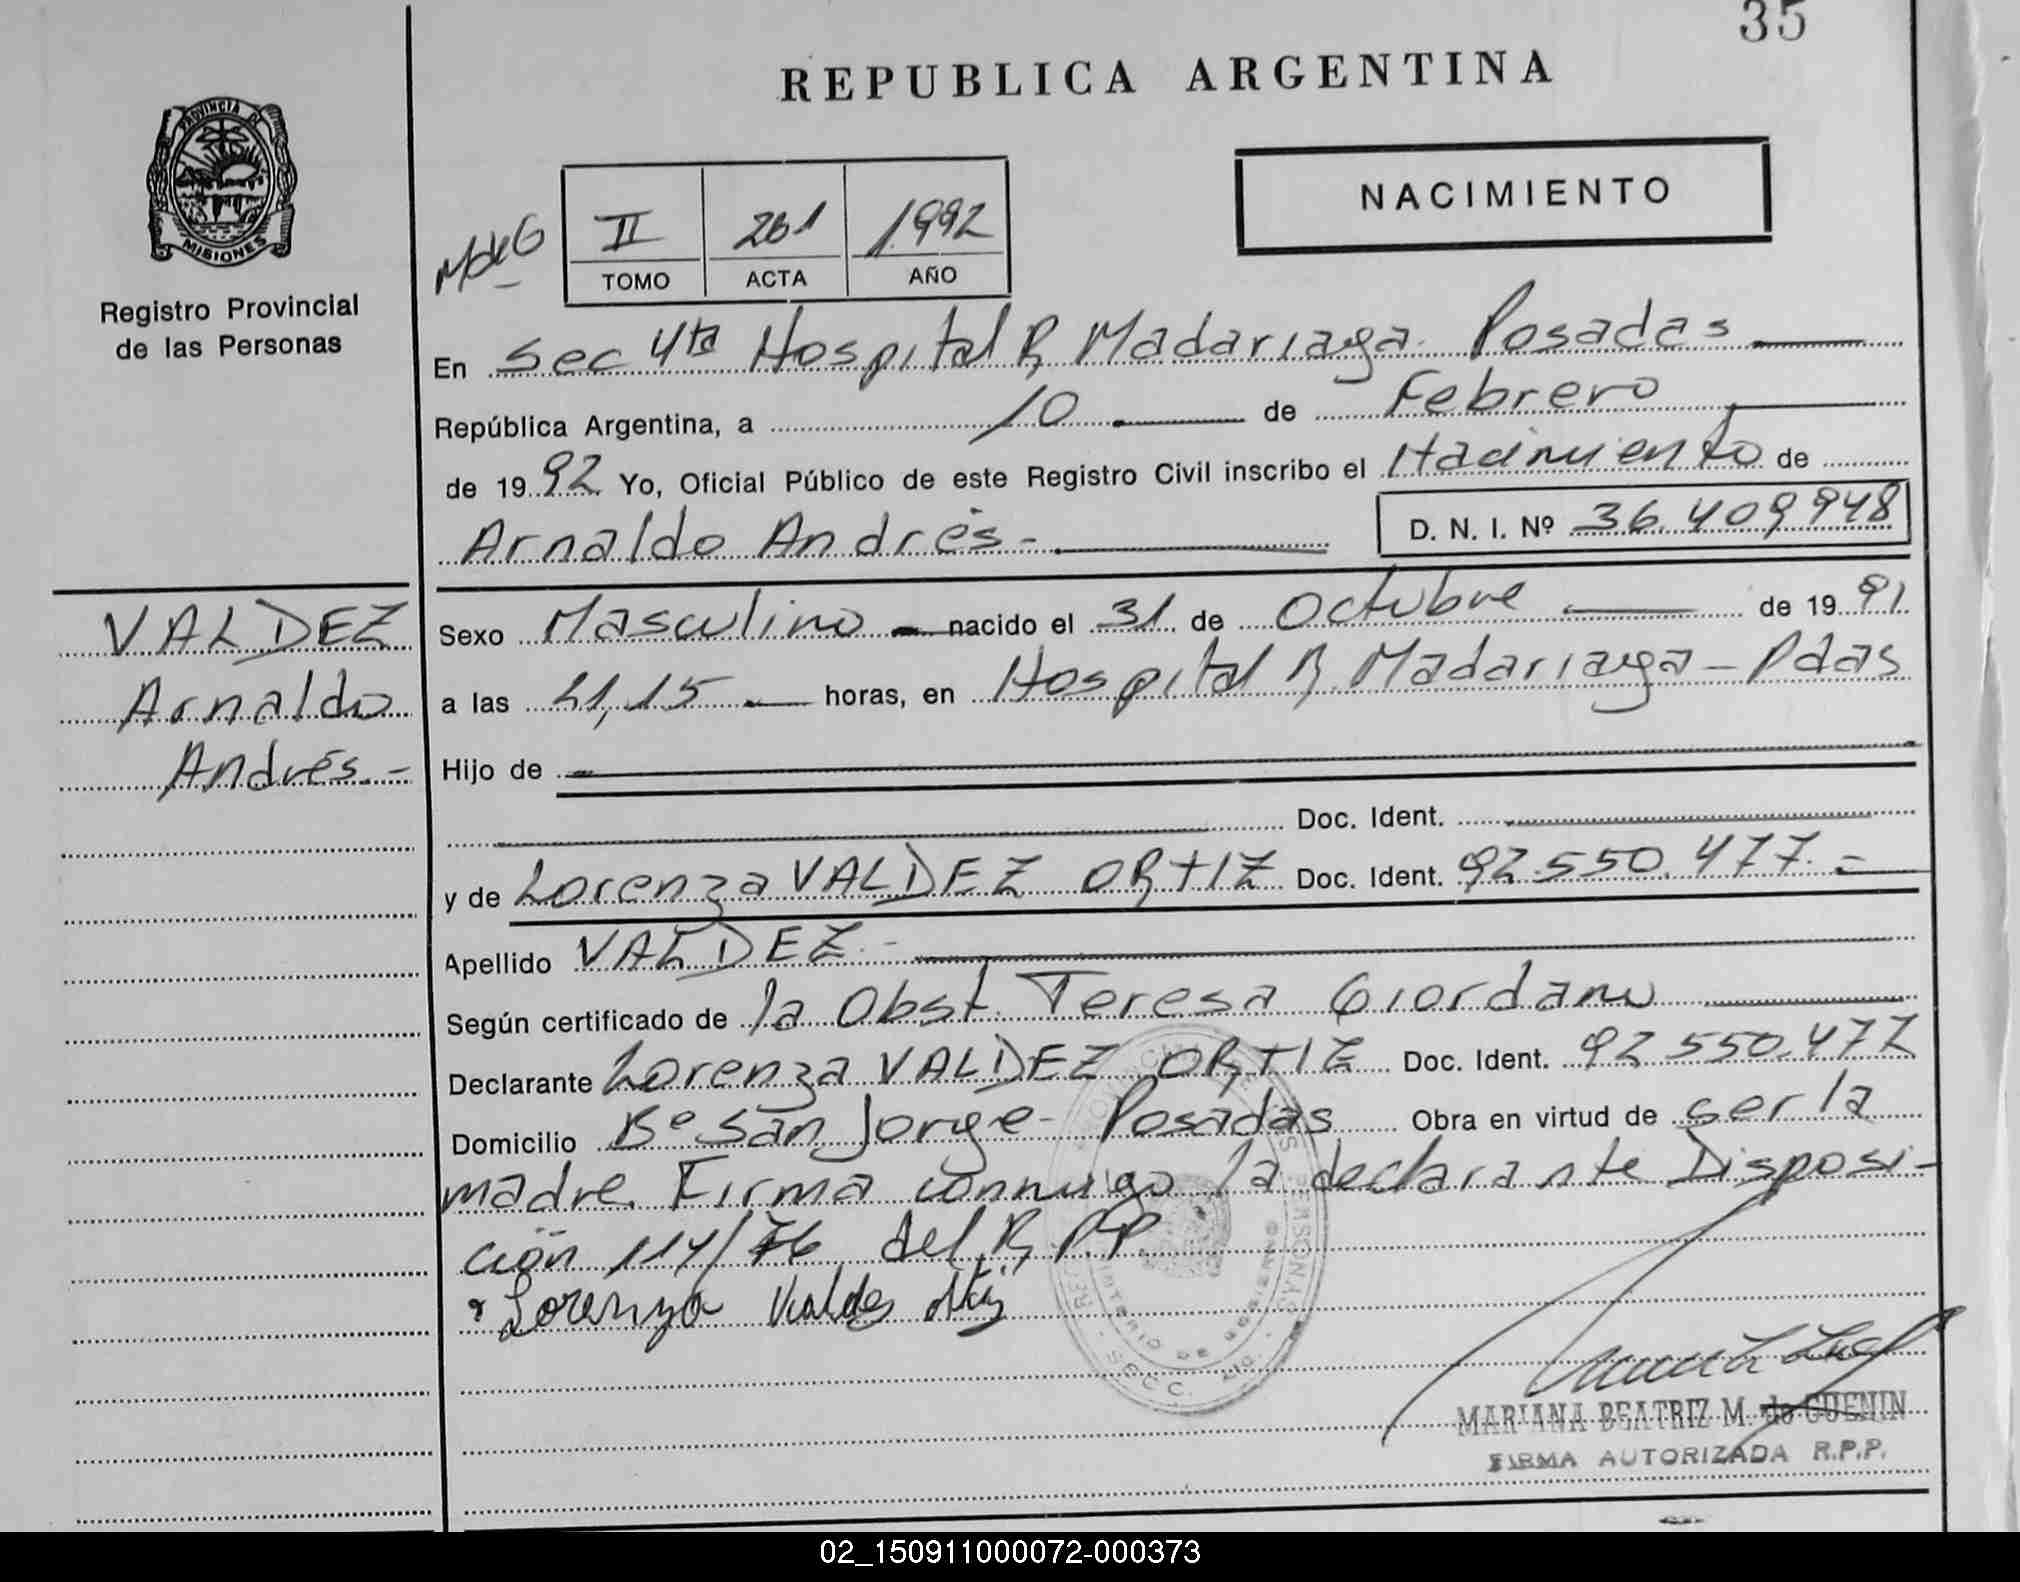 35
REPUBLICA ARGENTINA
PROVINCIA DE
MISIONES
Registro Provincial
de las Personas
NACIMIENTO
MdeG
II 261 1992
TOMO ACTA AÑO
En Sec 4ta Hospital R. Madariaga. Posadas
República Argentina, a 10 de Febrero
de 1992 Yo, Oficial Público de este Registro Civil inscribo el Nacimiento de
Arnaldo Andrés.- D. N. I. Nº 36.409948
VALDEZ
Arnaldo
Andrés.-
Sexo Masculino - nacido el 31 de Octubre de 1991
a las 21,15 horas, en Hospital R. Madariaga - Pdas
Hijo de
Doc. Ident.
y de Lorenza VALDEZ ORTIZ Doc. Ident. 92.550.477.-
Apellido VALDEZ.-
Según certificado de la Obst. Teresa Giordano
Declarante Lorenza VALDEZ ORTIZ Doc. Ident. 92 550.477
Domicilio Bº San Jorge - Posadas Obra en virtud de ser la
madre. Firma conmigo la declarante Disposi-
ción 114/76 del R.P.P.
Lorenza Valdez Ortiz
MARIANA BEATRIZ M. de GUENIN
FIRMA AUTORIZADA R.P.P.
02_150911000072-000373